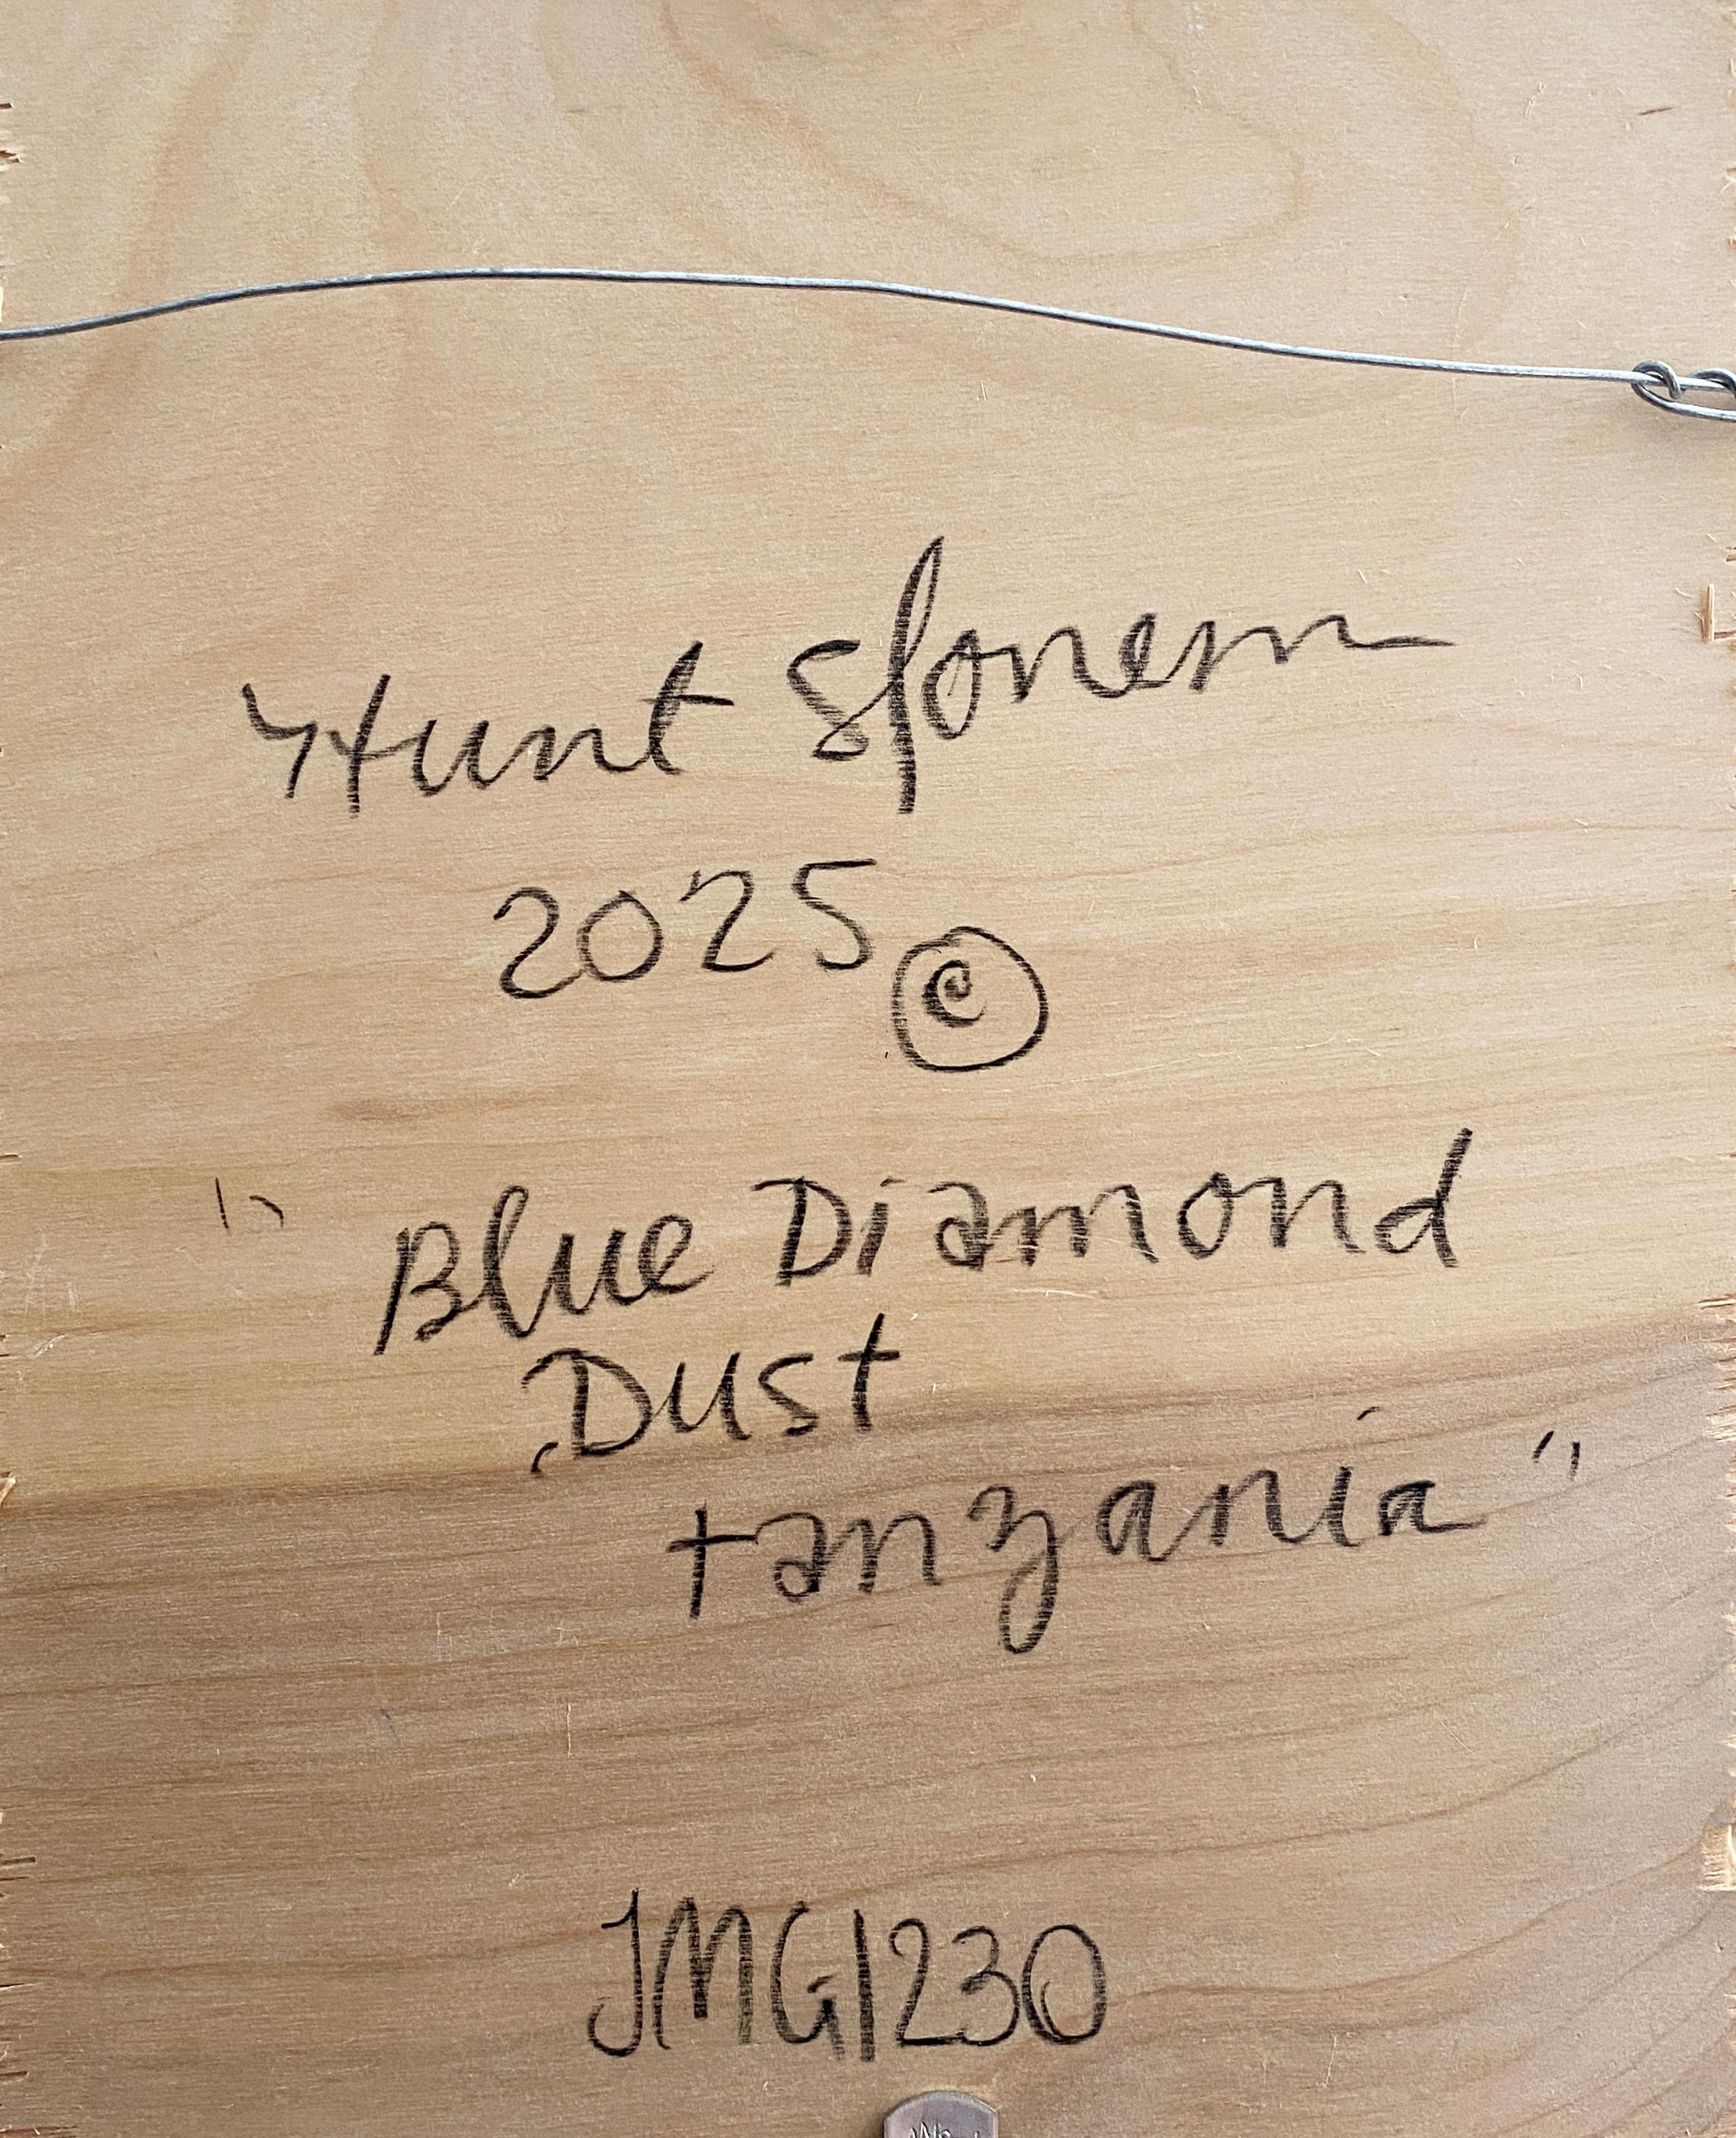 Hunt Slonem
2025 ©
"Blue Diamond
Dust
tanzania"
JMG1230